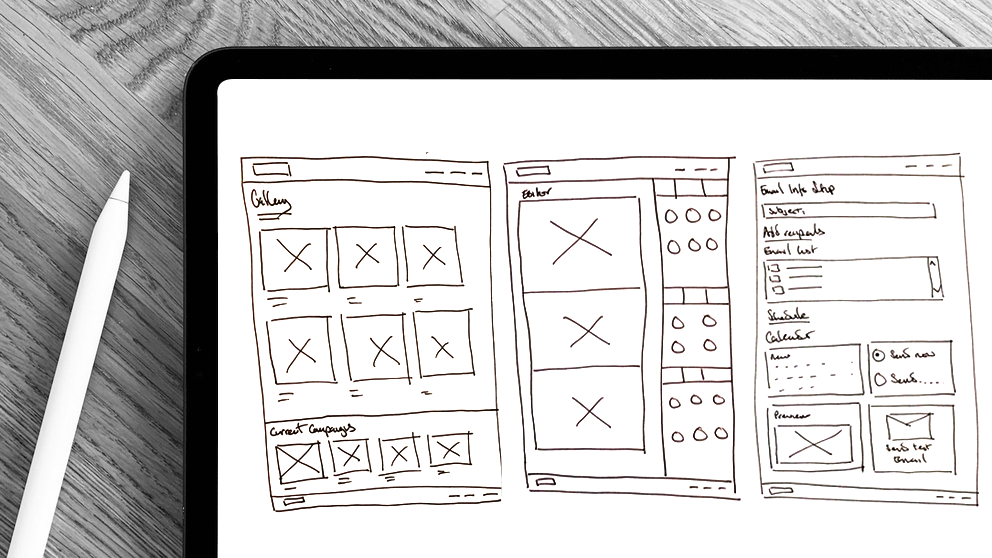 Gallery
Current Campaigns
Editor
Email Info Step
Subject:
Add recipients
Email list
Schedule
Calendar
Send now
Send....
Preview
Send test
Email